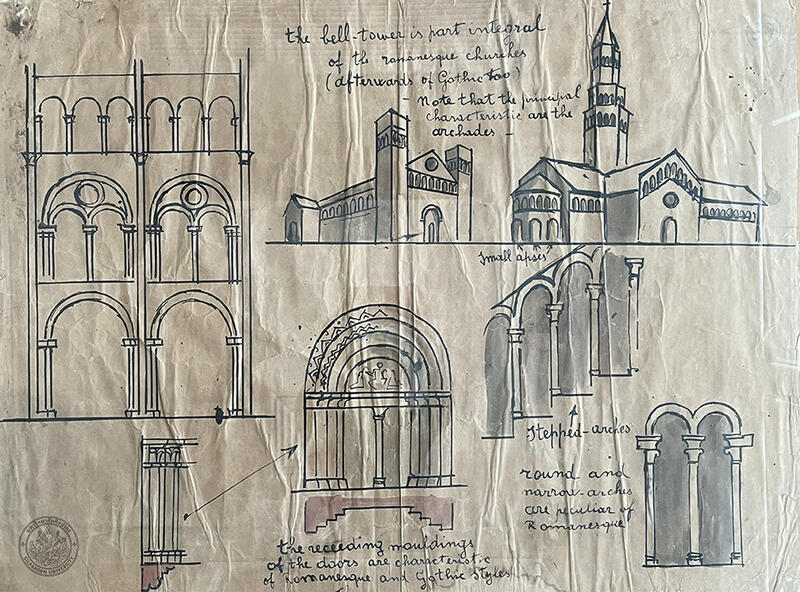 the bell-tower is part integral
of the romanesque churches
(afterwards of Gothic too)
- Note that the principal
characteristic are the
archades -
small apses
stepped-arches
round and
narrow-arches
are peculiar of
Romanesque
the receeding mouldings
of the doors are characteristic
of Romanesque and Gothic Styles
SILPAKORN UNIVERSITY